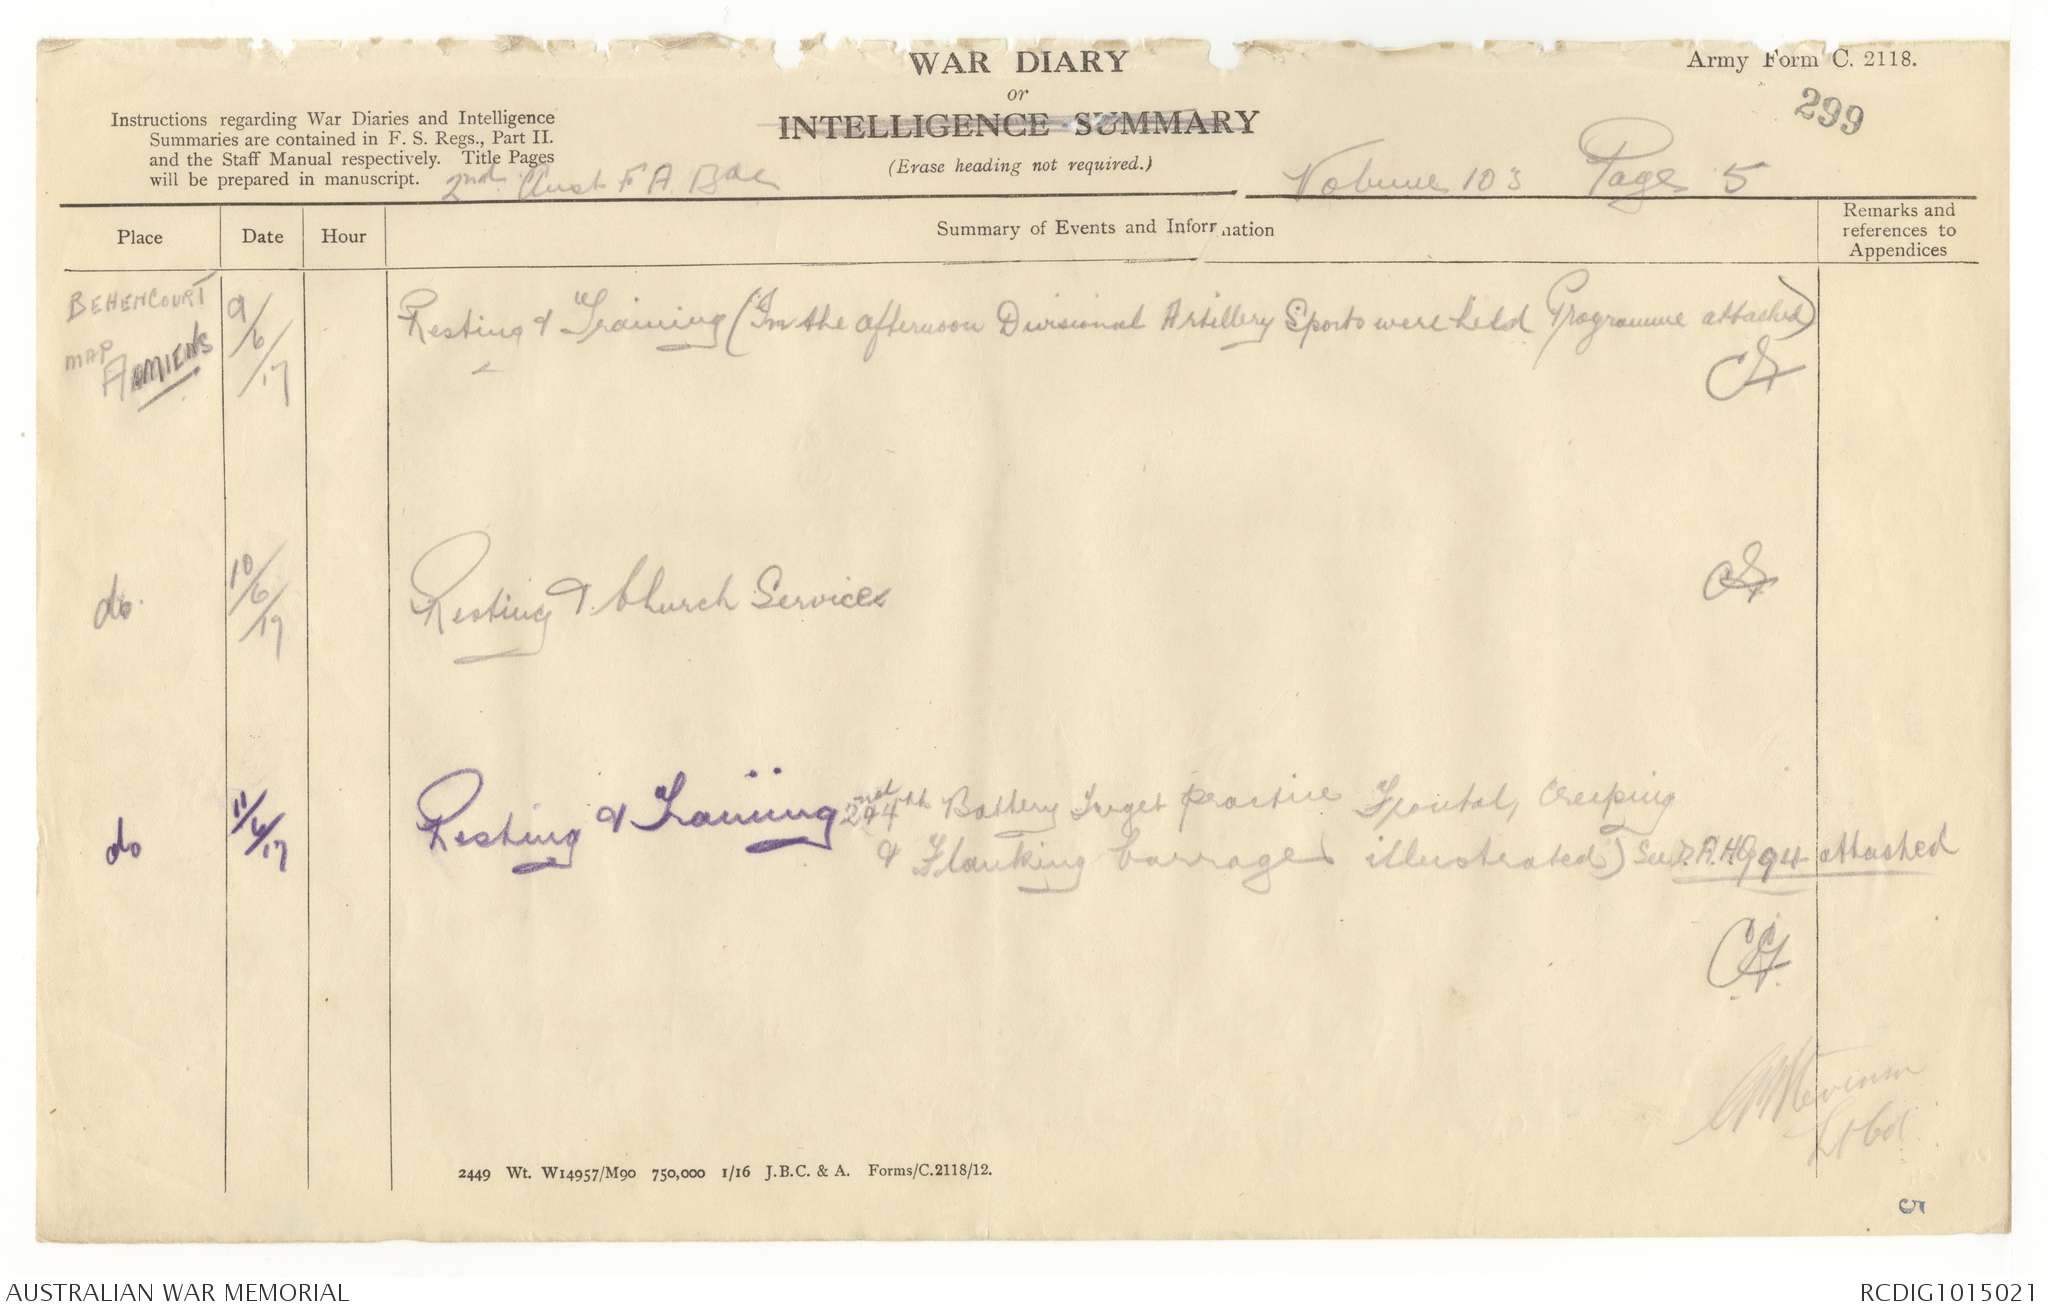 WAR DIARY
or
INTELLIGENCE SUMMARY
(Erase heading not required.)
Army Form C. 2118.
299
Instructions regarding War Diaries and Intelligence
Summaries are contained in F. S. Regs., Part II.
and the Staff Manual respectively. Title Pages
will be prepared in manuscript.
2nd Aust F A Bde
Volume 103 Page 5
Place Date Hour Summary of Events and Information Remarks and references to Appendices
BEHENCOURT
MAP
AMIENS
9/6/17
Resting & Training (In the afternoon Divisional Artillery Sports were held Programme attached)
do.
10/6/17
Resting & Church Services
do
11/6/17
Resting & Training Battery practice Frontal, Creeping
& Flanking barrages illustrated) See D.A.H.Q 94 attached
Stevenson
Lt Col
2449 Wt. W14957/M90 750,000 1/16 J.B.C. & A. Forms/C.2118/12.
5
AUSTRALIAN WAR MEMORIAL
RCDIG1015021